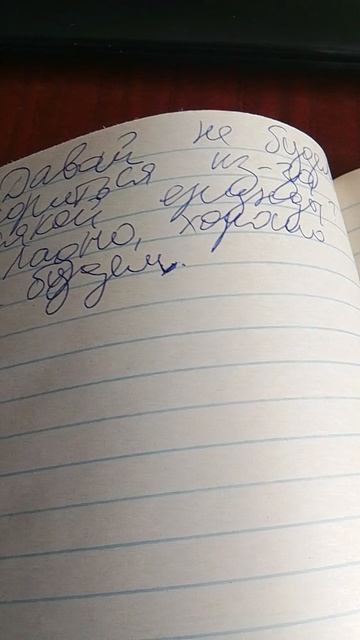 Давай не будем
ориться из-за
якой ерунды?
Ладно, хорошо
будем.